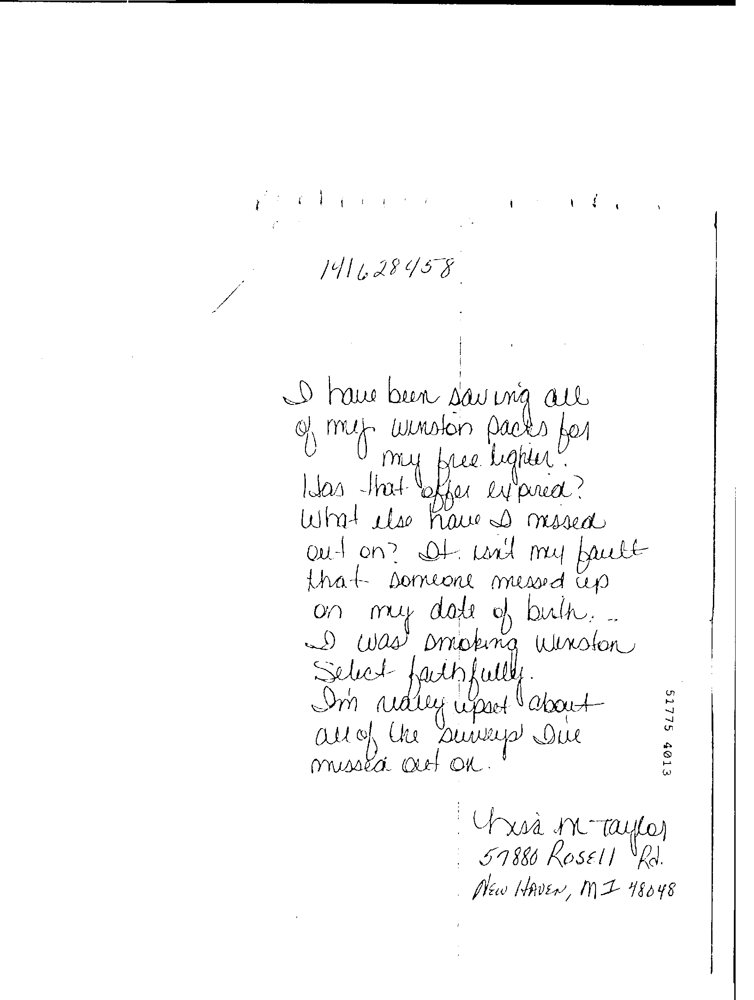 141628458
I have been saving all
of my winston packs for
my free lighter.
Has that offer expired?
What else have I missed
out on? It isn't my fault
that someone messed up
on my date of birth. ..
I was smoking Winston
Select faithfully.
I'm really upset about
all of the surveys I've
missed out on.
51775 4013
M Taylor
57880 Rosell Rd.
New Haven, MI 48048